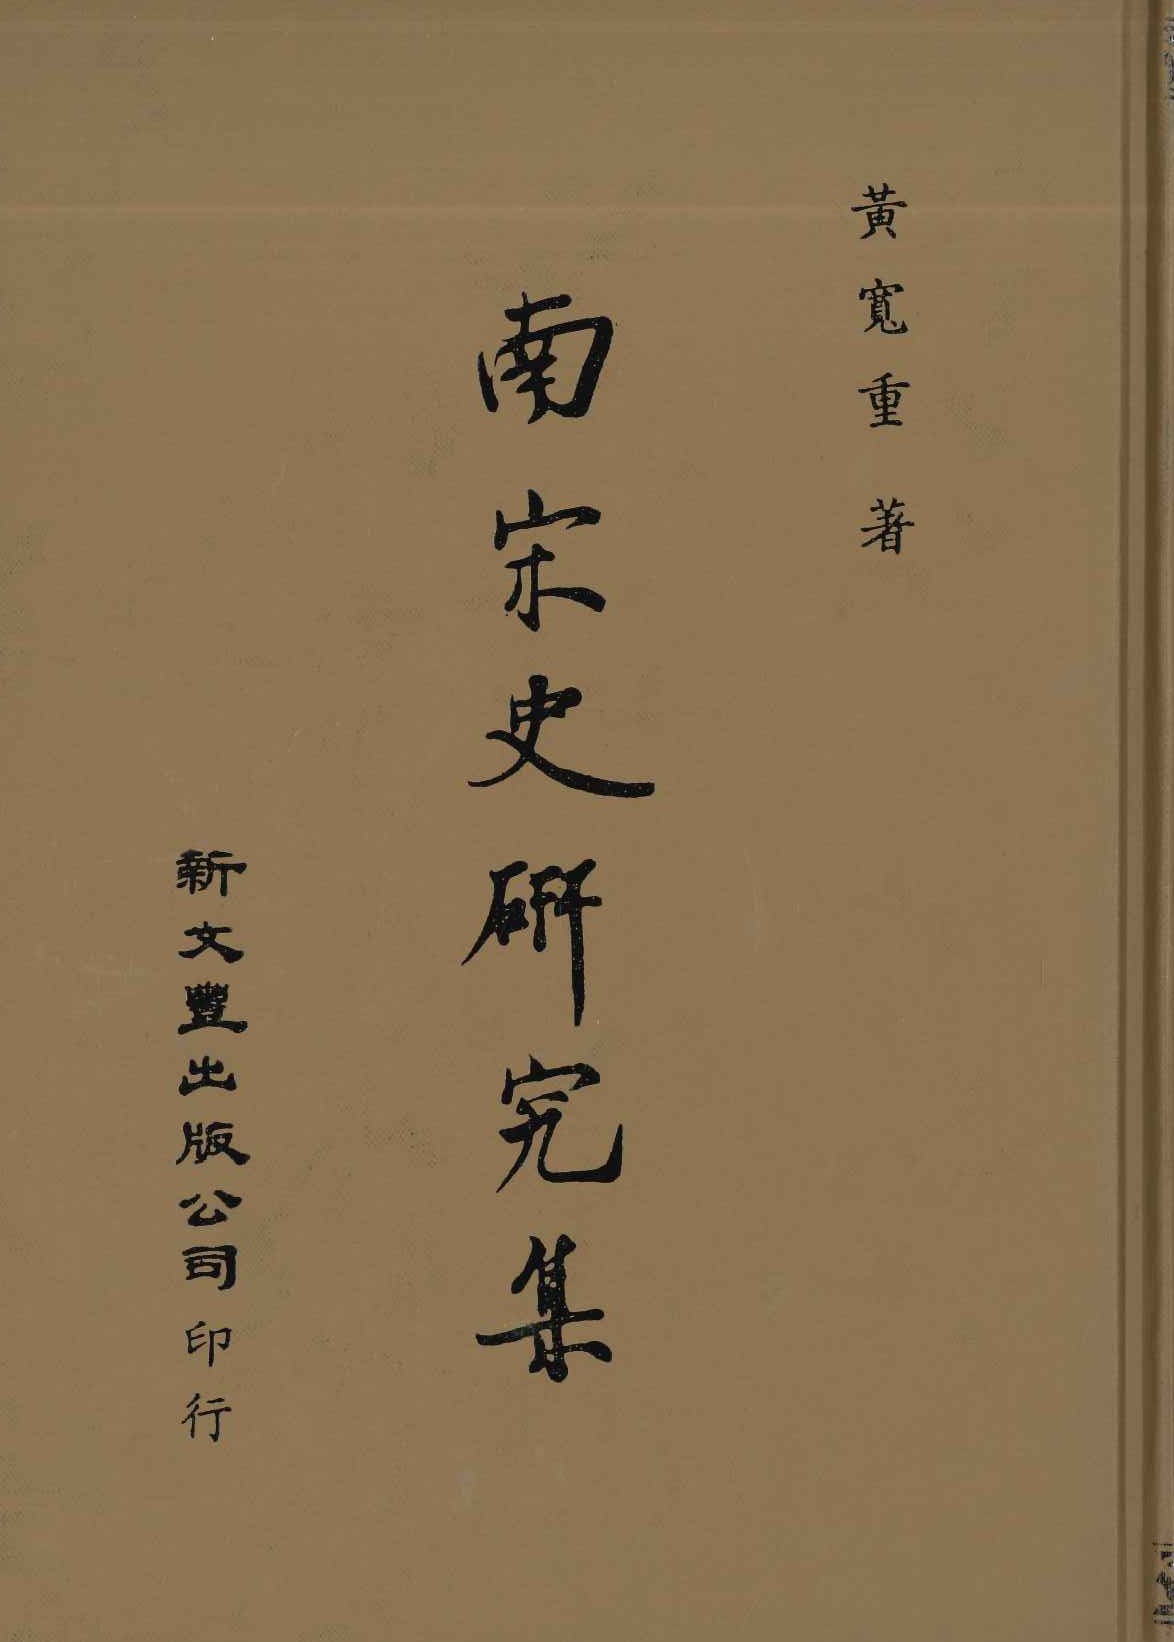 黃寬重 著
南宋史研究集
新文豐出版公司印行